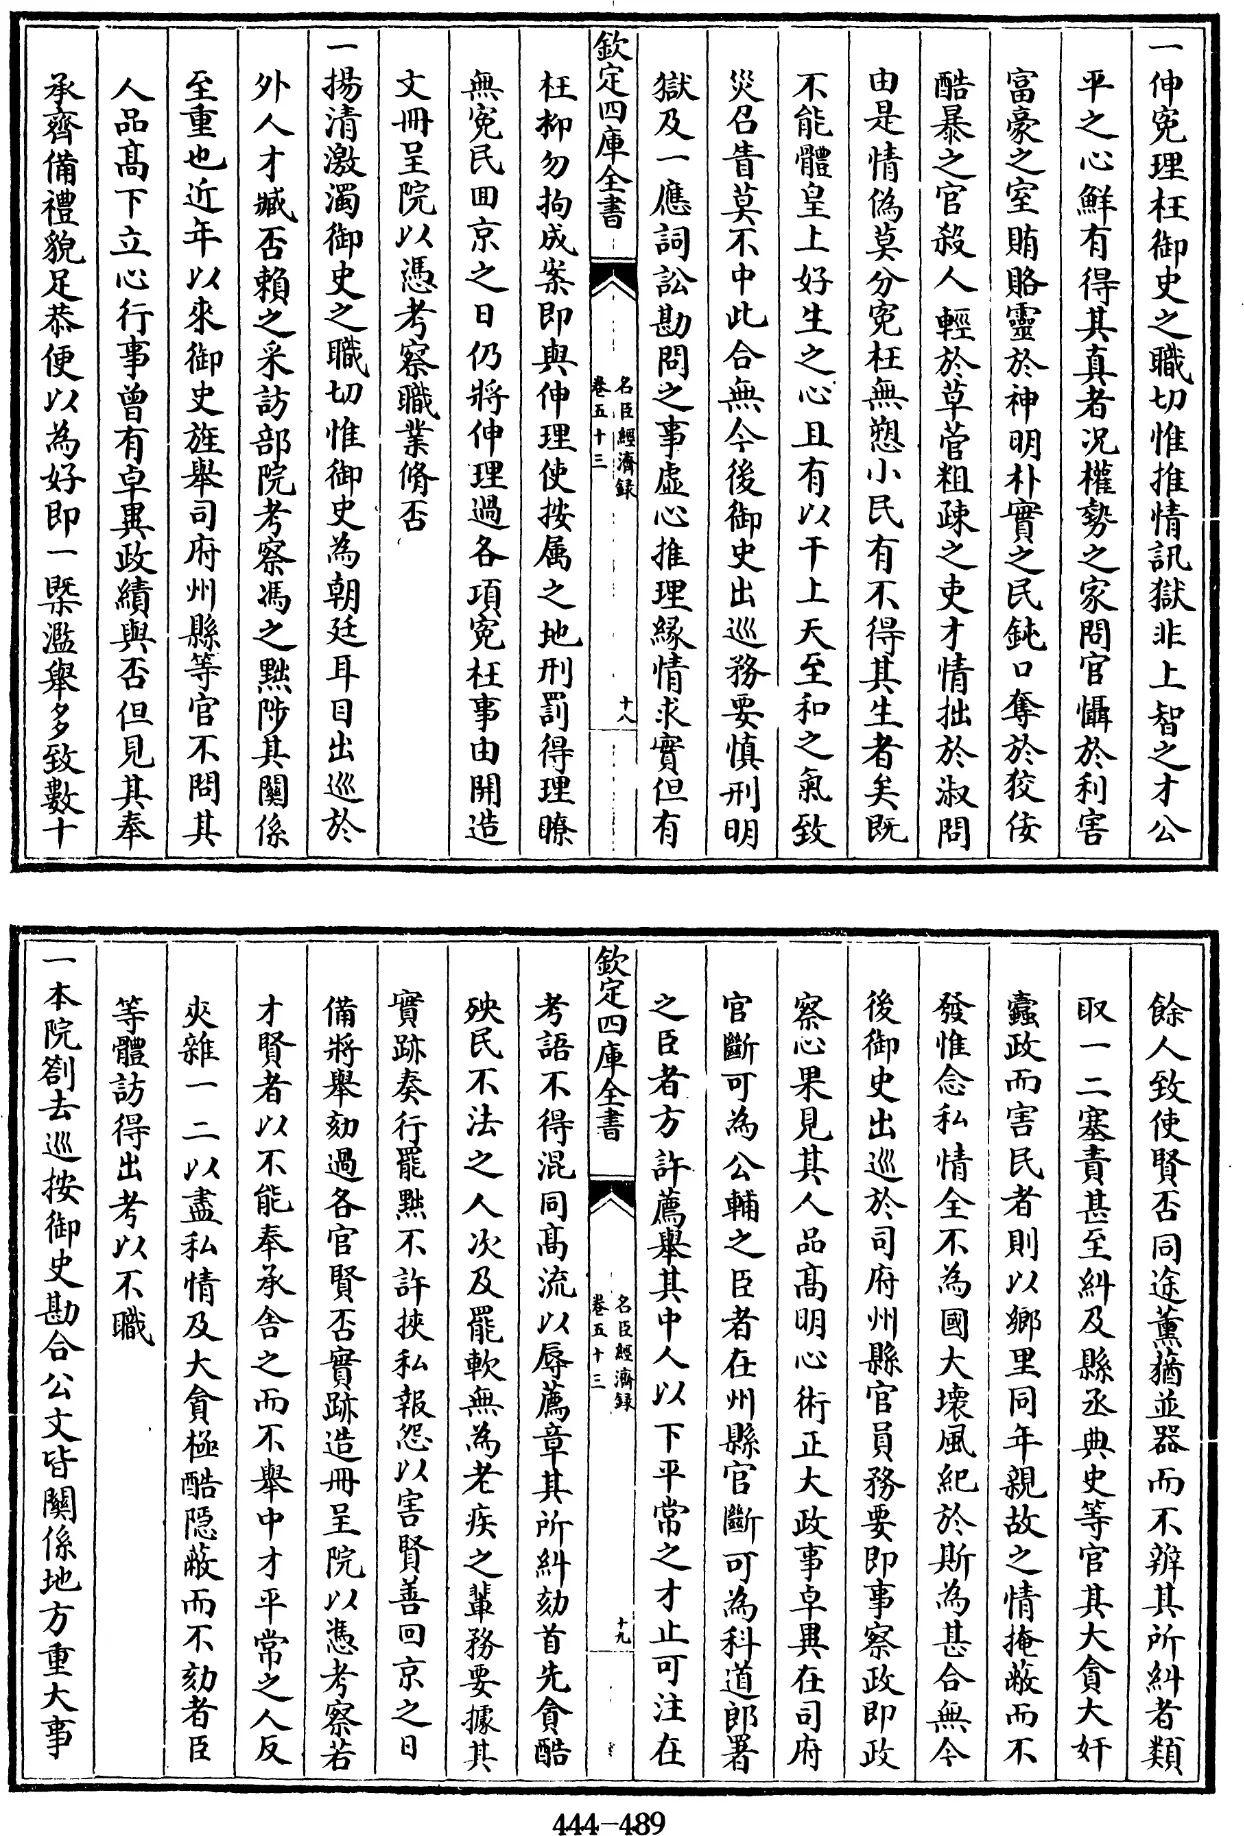 一伸寃理枉御史之職切惟推情訊獄非上智之才公
平之心鮮有得其真者况權勢之家問官懾於利害
富豪之室賄賂靈於神明朴實之民鈍口奪於狡佞
酷暴之官殺人輕於草菅粗疎之吏才情拙於淑問
由是情偽莫分寃枉無愬小民有不得其生者矣既
不能體皇上好生之心且有以干上天至和之氣致
災召眚莫不中此合無今後御史出巡務要慎刑明
獄及一應詞訟勘問之事虛心推理緣情求實但有
欽定四庫全書
名臣經濟録
卷五十三
十八
枉抑勿拘成案即與伸理使按属之地刑罰得理瞭
無寃民囬京之日仍將伸理過各項寃枉事由開造
文冊呈院以憑考察職業脩否
一揚清激濁御史之職切惟御史為朝廷耳目出巡於
外人才臧否賴之采訪部院考察馮之黜陟其關係
至重也近年以來御史旌舉司府州縣等官不問其
人品髙下立心行事曾有卓異政績與否但見其奉
承齊備禮貌足恭便以為好即一槩濫舉多致數十
餘人致使賢否同途薰蕕並器而不辨其所糾者類
取一二塞責甚至糾及縣丞典史等官其大貪大奸
蠧政而害民者則以鄉里同年親故之情掩蔽而不
發惟念私情全不為國大壊風紀於斯為甚合無今
後御史出巡於司府州縣官員務要即事察政即政
察心果見其人品髙明心術正大政事卓異在司府
官斷可為公輔之臣者在州縣官斷可為科道郎署
之臣者方許薦舉其中人以下平常之才止可注在
欽定四庫全書
名臣經濟録
卷五十三
十九
考語不得混同髙流以辱薦章其所糾劾首先貪酷
殃民不法之人次及罷軟無為老疾之輩務要據其
實跡奏行罷黜不許挾私報怨以害賢善回京之日
備將舉劾過各官賢否實跡造冊呈院以憑考察若
才賢者以不能奉承舎之而不舉中才平常之人反
夾雜一二以盡私情及大貪極酷隠蔽而不劾者臣
等體訪得出考以不職
一本院劄去巡按御史勘合公文皆關係地方重大事
444-489